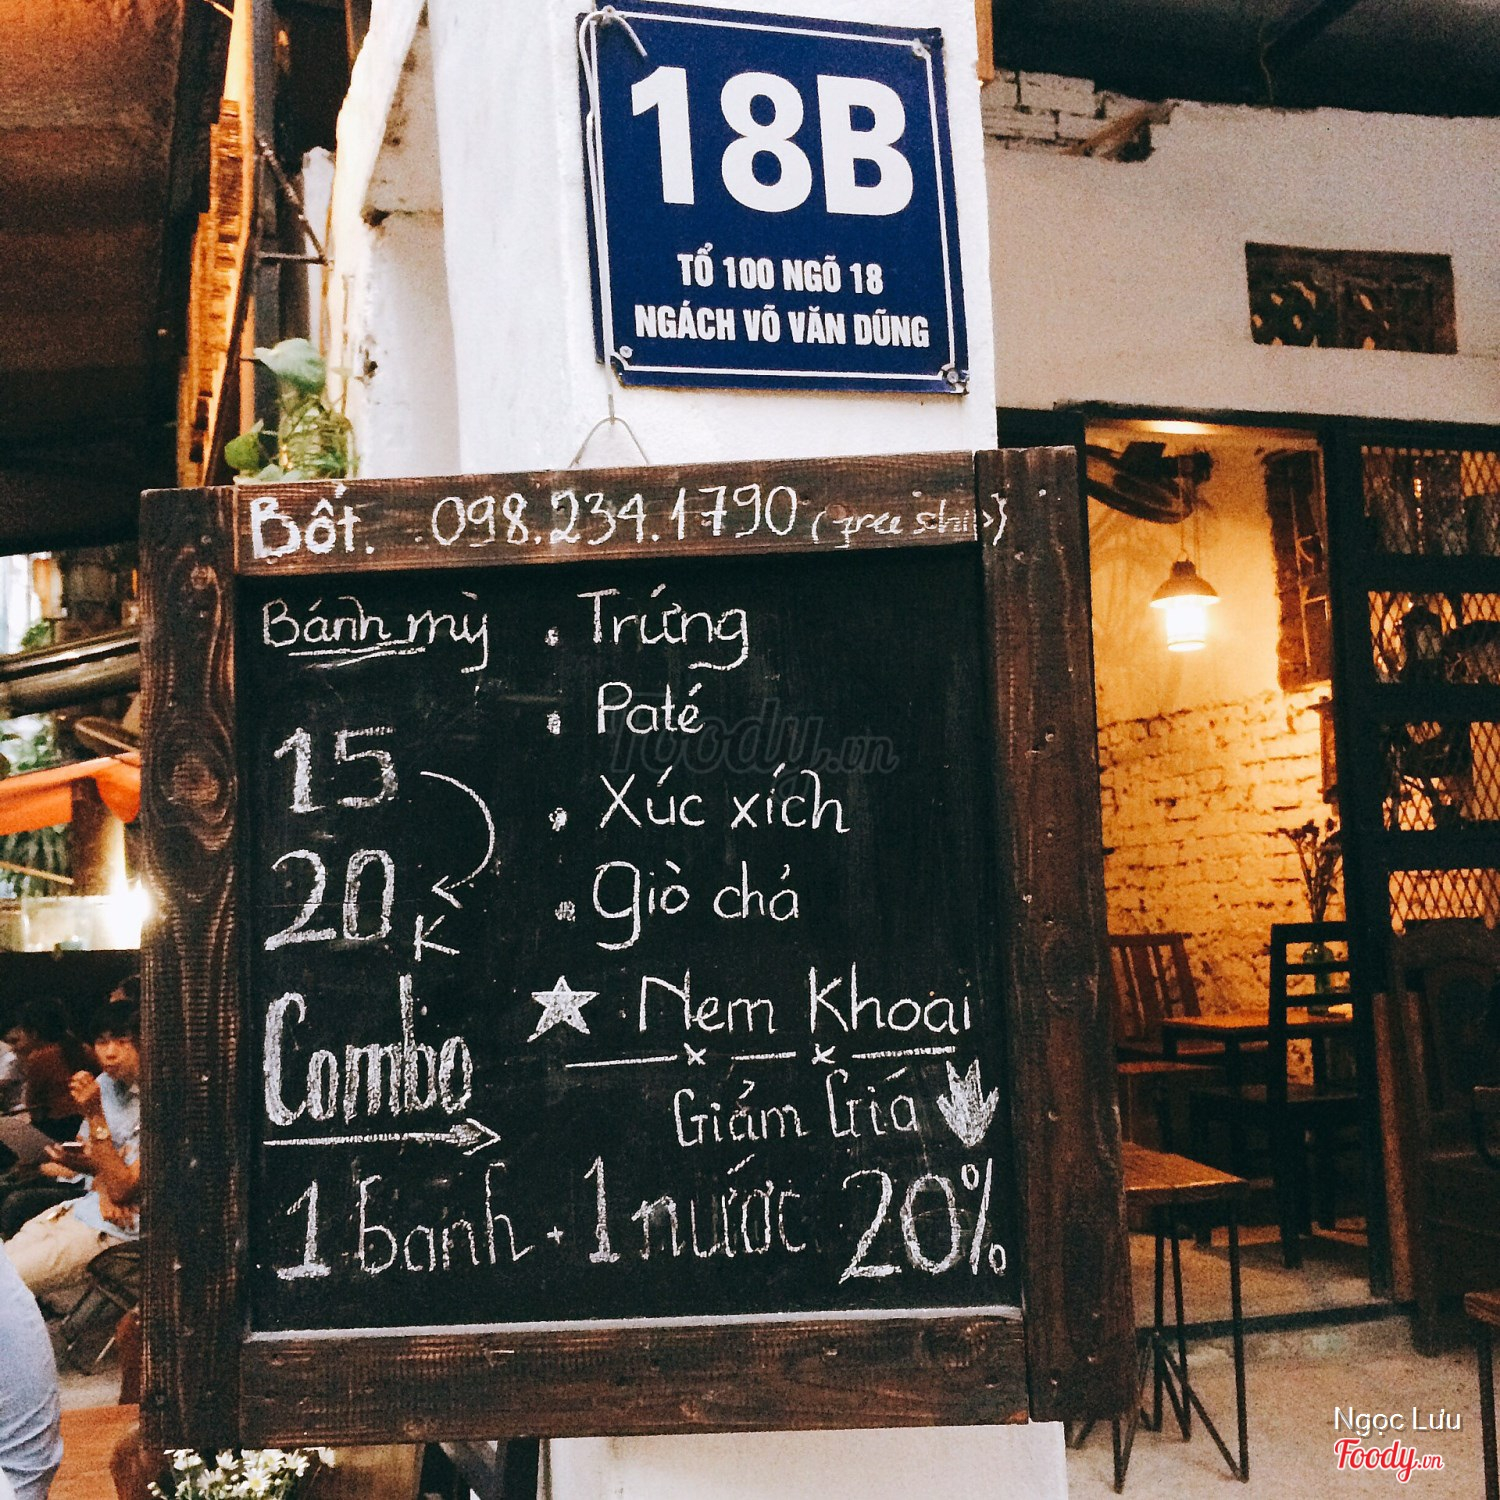 18B
TỔ 100 NGÕ 18
NGÁCH VÕ VĂN DŨNG
Bốt. 098.234.1790 (free ship)
Bánh mỳ
15
20K
. Trứng
. Paté
. Xúc xích
. Giò chả
★ Nem Khoai
Combo
Giảm Giá
1 bánh + 1 nước 20%
Foody.vn
Ngọc Lưu
Foody.vn